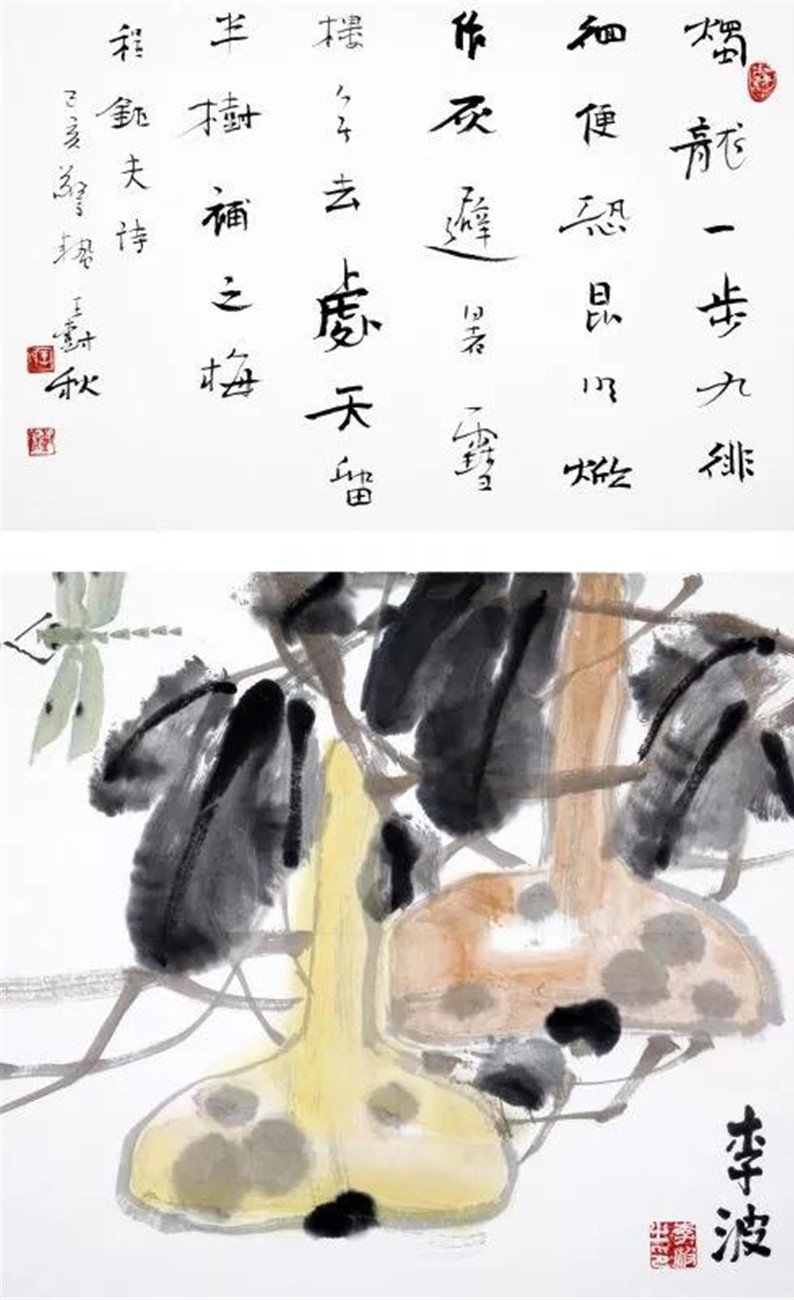 燭龍一步九徘
徊便恐昆明燃
作灰避暑雪
樓今去處天留
半樹補之梅
程鉅夫詩
己亥驚蟄王秋
李波